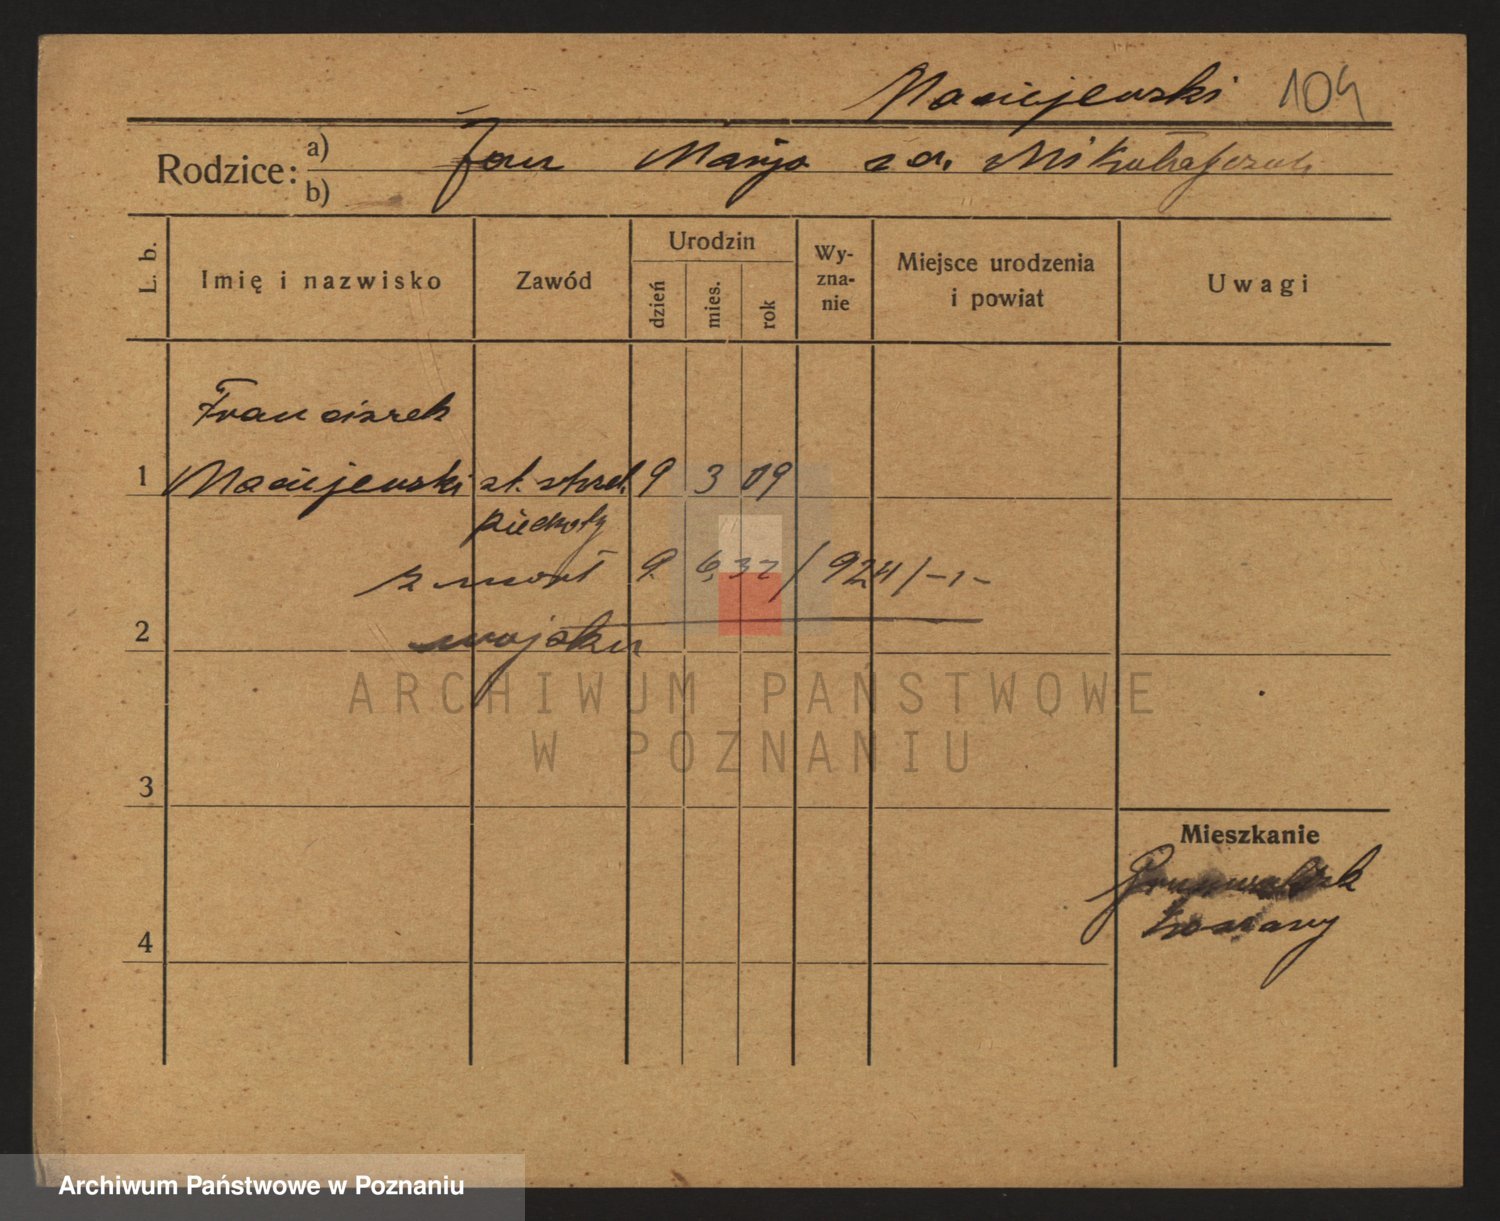 Maciejewski 104
Rodzice: a) Jan Marja z d. Mikołajczak
b)
L. b.
Imię i nazwisko
Zawód
Urodzin
dzień
mies.
rok
Wy-
zna-
nie
Miejsce urodzenia
i powiat
Uwagi
Franciszek
1 Maciejewski st. strzel. 9 3 09
piechoty
zmarł 9. 6, 32 / 924 / -1-
2 wojsku
ARCHIWUM PAŃSTWOWE
W POZNANIU
3
Mieszkanie
koszary
4
Archiwum Państwowe w Poznaniu